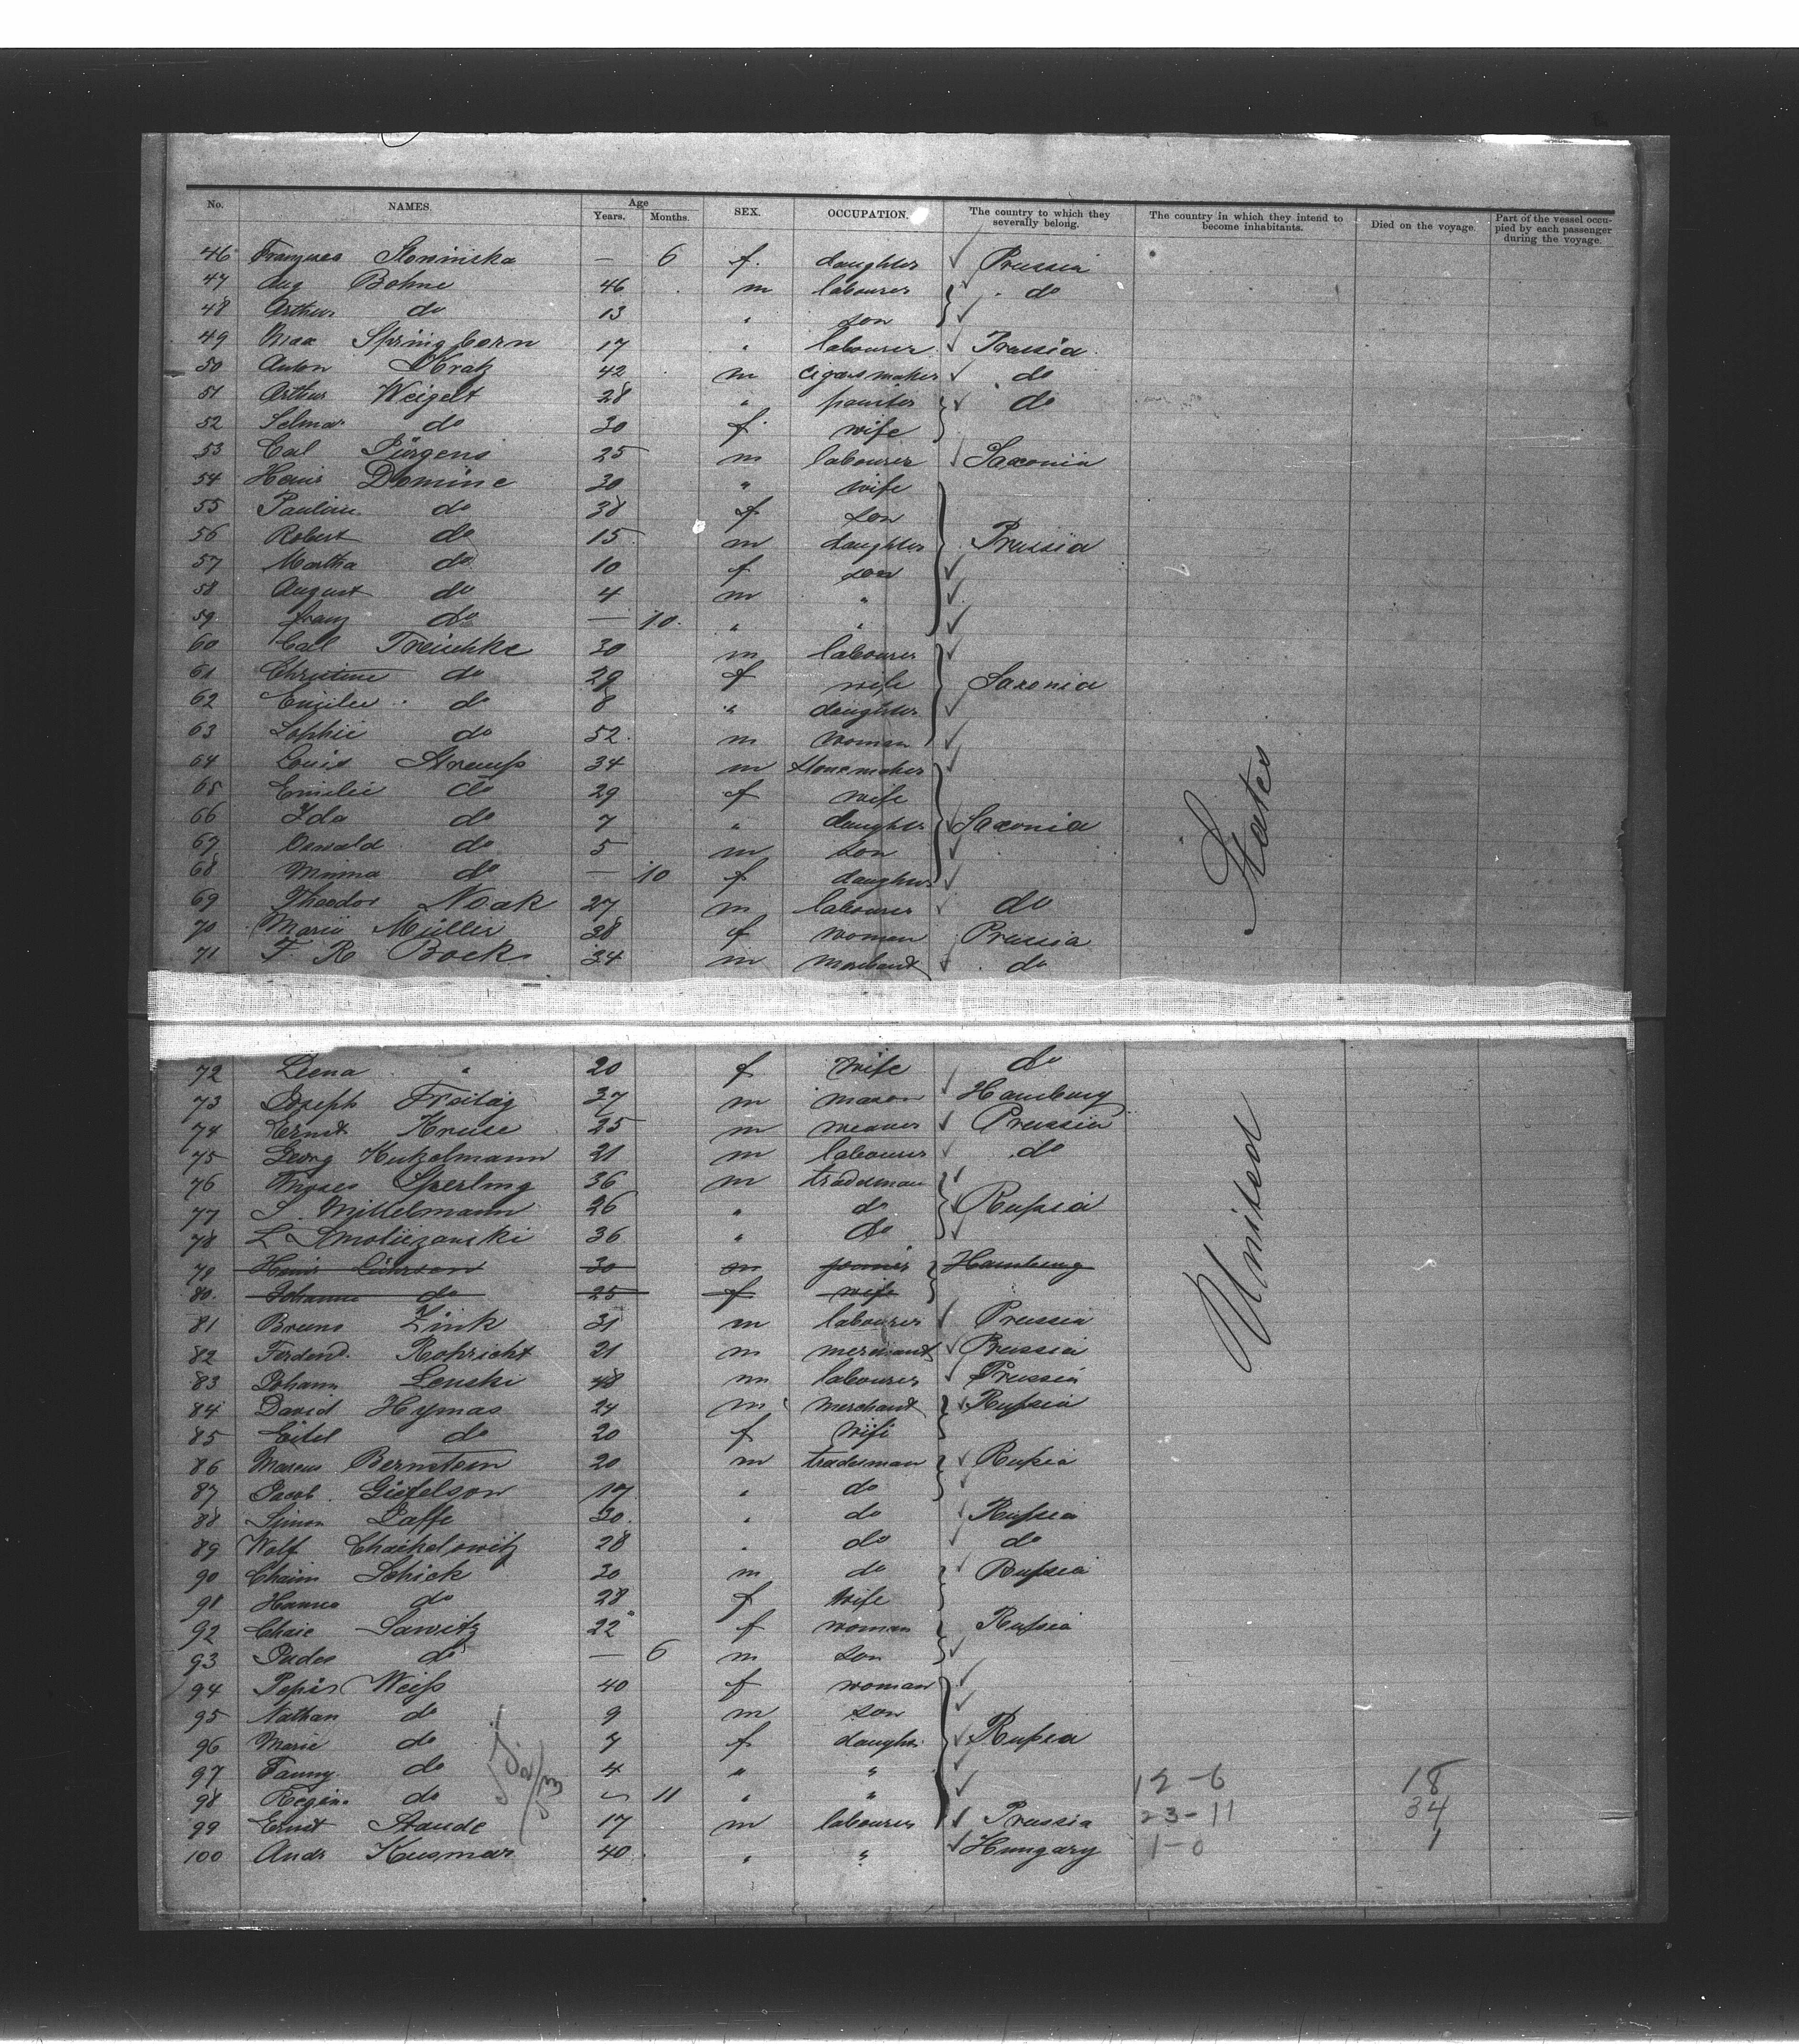 No. NAMES. Age Years. Months. SEX. OCCUPATION. The country to which they severally belong. The country in which they intend to become inhabitants. Died on the voyage. Part of the vessel occupied by each passenger during the voyage.
46 — 6 f. daughter ✓ Prussia
47 Aug Bohne 46 m labourer ✓ do
48 Arthur do 13 " son ✓
49 Max Springborn 17 " labourer ✓ Prussia
50 Anton Kratz 42 m cigarsmaker ✓ do
51 Arthur Weigelt 28 " painter ✓ do
52 Selma do 30 f wife
53 Carl Jürgens 25 m labourer ✓ Saxonia
54 Heinr Domine 30 " wife
55 Pauline do 38 f son
56 Robert do 15 m daughter Prussia
57 Martha do 10 f son ✓
58 August do 4 m " ✓
59 franz do — 10 " " ✓
60 Carl Treischke 30 m labourer ✓
61 Christine do 29 f wife Saxonia
62 Emilie do 8 " daughter ✓
63 Sophie do 52 m woman ✓
64 Louis Strauss 34 m ✓
65 Emilie do 29 f wife
66 Ida do 7 " daughter ✓ Saxonia
67 Oswald do 5 m son ✓
68 Minna do — 10 f daughter ✓
69 Theodor Noak 27 m labourer ✓ do
70 Marie Müller 38 f woman Prussia
71 F R Bock 34 m merchant ✓ do
States
72 Leena " 20 f wife do
73 Joseph Freitag 37 m mason ✓ Hamburg
74 Ernst Kruse 25 m weaver ✓ Prussia
75 Georg Hutzelmann 21 m labourer ✓ do
76 Moses Sperling 36 m tradesman ✓
77 S. Mittelmann 26 " do ✓ Russia
78 L 36 " do ✓
79 Heinr Lührsen 30 m joiner Hamburg
80. Johanna do 25 f wife
81 Bruno Zink 31 m labourer ✓ Prussia
82 Ferdend. Rohricht 21 m merchant ✓ Prussia
83 Johann Lenski 48 m labourer ✓ Prussia
84 David Hymas 24 m merchant ✓ Russia
85 Eitel do 20 f wife
86 Marcus Bernstein 20 m tradesman ✓ Russia
87 Jacob Gietelson 17 " do ✓
88 Simon Jaffe 30. " do ✓ Russia
89 Wolf Chaikelowitz 28 " do ✓ do
90 Chaim Schick 30 m do ✓ Russia
91 Hanna do 28 f wife
92 Chaie Sawitz 22 f woman Russia
93 do — 6 m son ✓
94 Weiss 40 f woman ✓
95 Nathan do 9 m son ✓
96 Marie do 7 f daughter ✓ Russia
97 Fanny do 4 " " ✓
98 Regina do 11 " " ✓ 12-6 18
99 Ernst Staude 17 m labourer ✓ Prussia 23-11 34
100 Andr Kusmar 40 " " ✓ Hungary 1-0 1
United